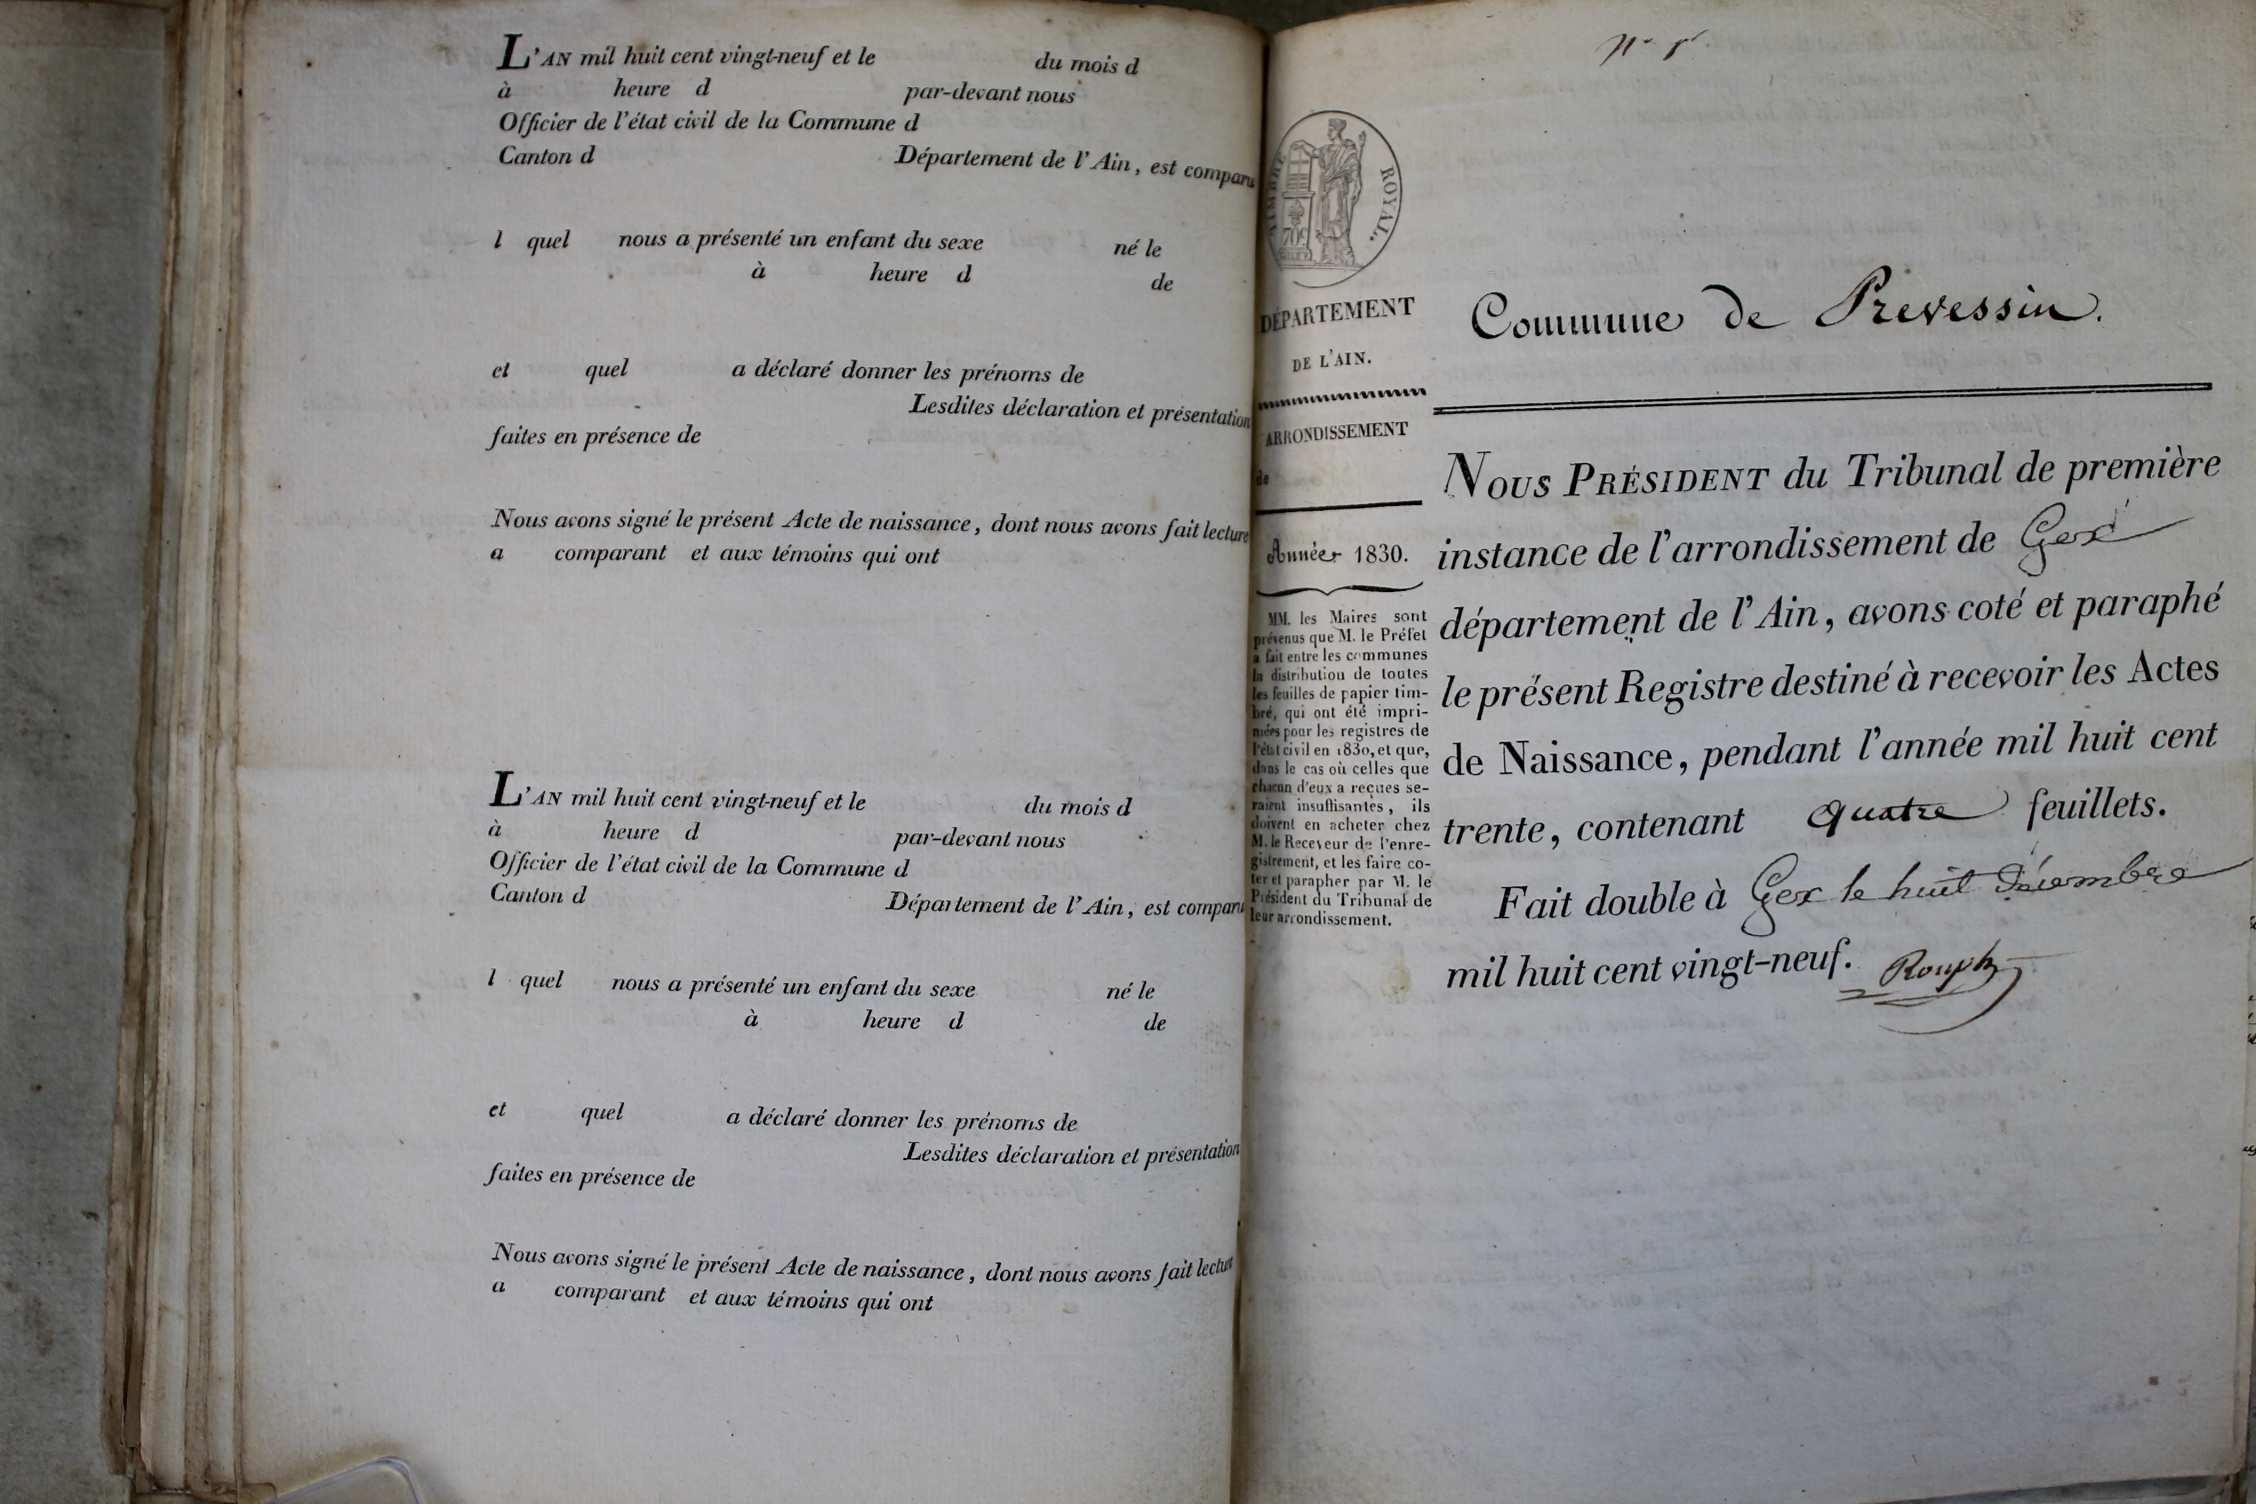 L'AN mil huit cent vingt-neuf et le du mois d
à heure d par-devant nous
Officier de l'état civil de la Commune d
Canton d Département de l'Ain, est comparu
l quel nous a présenté un enfant du sexe né le
à heure d de
et quel a déclaré donner les prénoms de
Lesdites déclaration et présentation
faites en présence de
Nous avons signé le présent Acte de naissance, dont nous avons fait lecture
a comparant et aux témoins qui ont
L'AN mil huit cent vingt-neuf et le du mois d
à heure d par-devant nous
Officier de l'état civil de la Commune d
Canton d Département de l'Ain, est comparu
l quel nous a présenté un enfant du sexe né le
à heure d de
et quel a déclaré donner les prénoms de
Lesdites déclaration et présentation
faites en présence de
Nous avons signé le présent Acte de naissance, dont nous avons fait lecture
a comparant et aux témoins qui ont
TIMBRE ROYAL.
70c
DÉPARTEMENT
DE L'AIN.
ARRONDISSEMENT
de
Année 1830.
MM. les Maires sont
prévenus que M. le Préfet
a fait entre les communes
la distribution de toutes
les feuilles de papier tim-
bré, qui ont été impri-
mées pour les registres de
l'état civil en 1830, et que,
dans le cas où celles que
chacun d'eux a reçues se-
raient insuffisantes, ils
doivent en acheter chez
M. le Receveur de l'enre-
gistrement, et les faire co-
ter et parapher par M. le
Président du Tribunal de
leur arrondissement.
Commune de Prevessin.
NOUS PRÉSIDENT du Tribunal de première
instance de l'arrondissement de Gex
département de l'Ain, avons coté et paraphé
le présent Registre destiné à recevoir les Actes
de Naissance, pendant l'année mil huit cent
trente, contenant quatre feuillets.
Fait double à Gex le huit Décembre
mil huit cent vingt-neuf.